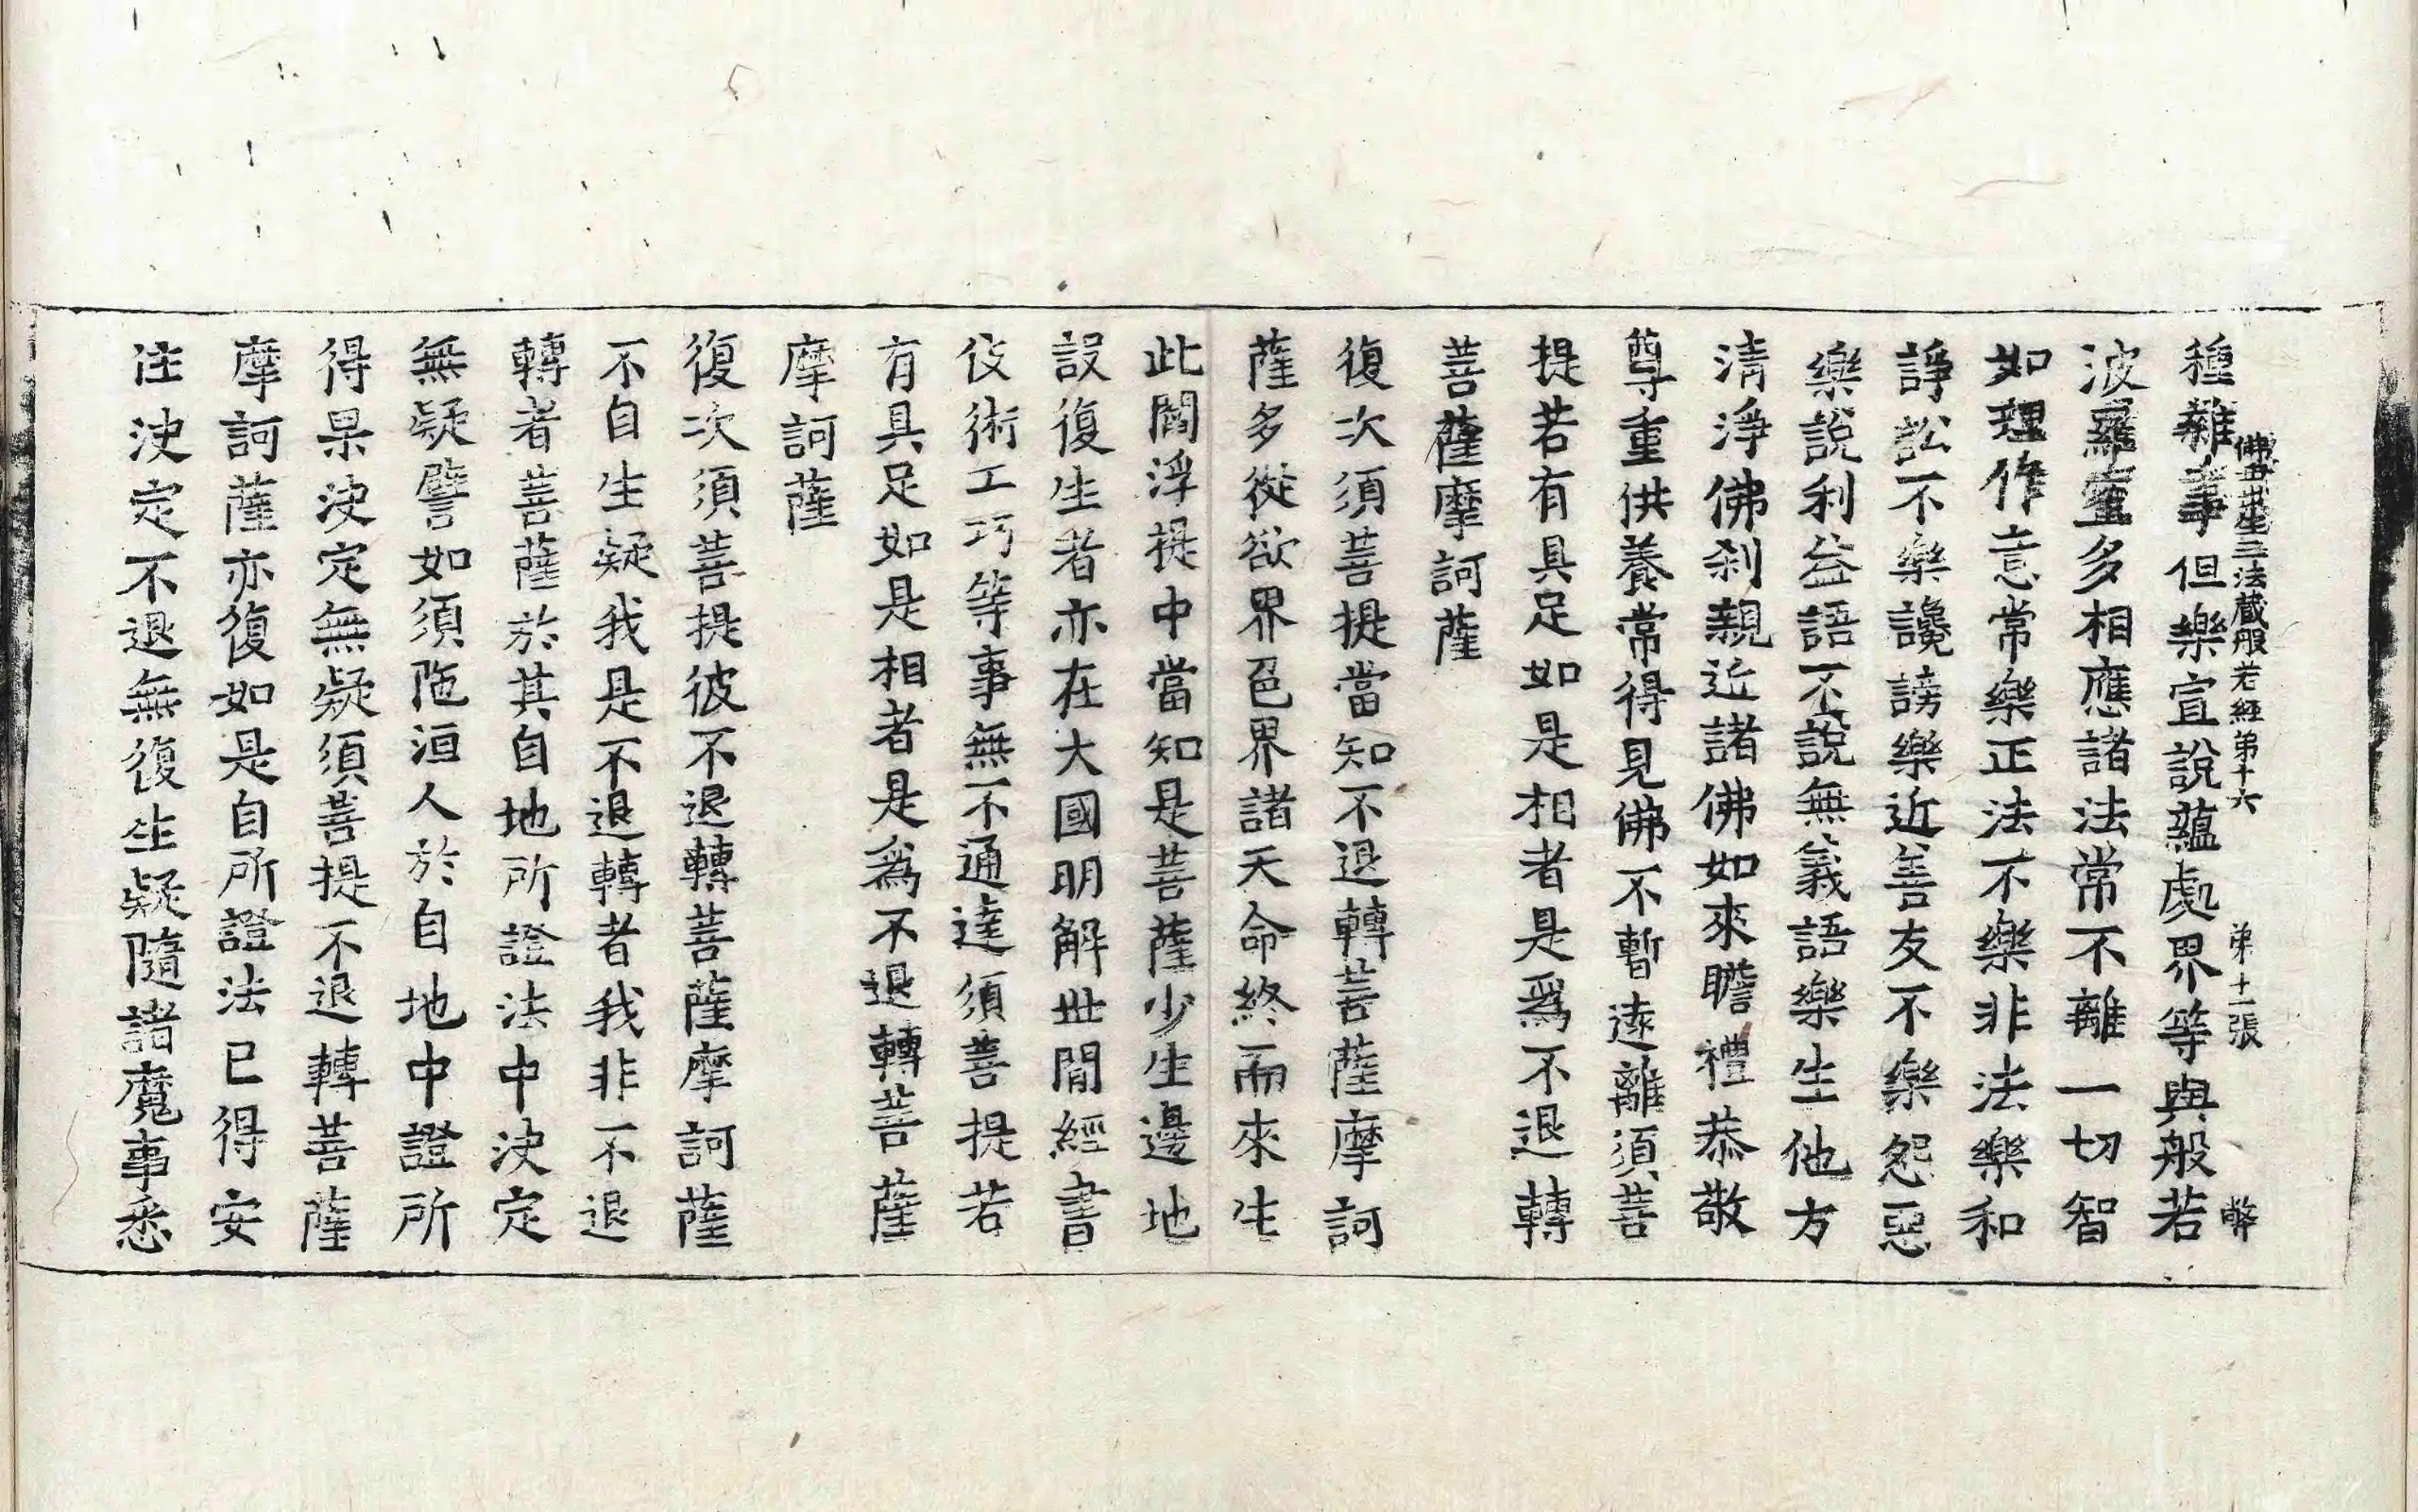 種雜事但樂宣說蘊處界等與般若
佛母出生三法藏般若經第十六 第十一張 弊
波羅蜜多相應諸法常不離一切智
如理作意常樂正法不樂非法樂和
諍訟不樂讒謗樂近善友不樂怨惡
樂說利益語不說無義語樂生他方
清淨佛剎親近諸佛如來瞻禮恭敬
尊重供養常得見佛不暫遠離須菩
提若有具足如是相者是為不退轉
菩薩摩訶薩
復次須菩提當知不退轉菩薩摩訶
薩多從欲界色界諸天命終而來生
此閻浮提中當知是菩薩少生邊地
設復生者亦在大國明解世間經書
伎術工巧等事無不通達須菩提若
有具足如是相者是為不退轉菩薩
摩訶薩
復次須菩提彼不退轉菩薩摩訶薩
不自生疑我是不退轉者我非不退
轉者菩薩於其自地所證法中決定
無疑譬如須陁洹人於自地中證所
得果決定無疑須菩提不退轉菩薩
摩訶薩亦復如是自所證法已得安
住決定不退無復生疑隨諸魔事悉